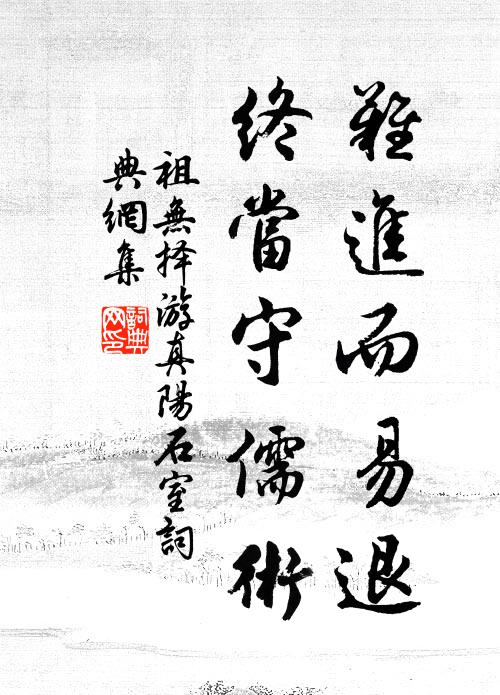 難進而易退
終當守儒術
祖無择游真陽石室詞
典網集
詞典网印